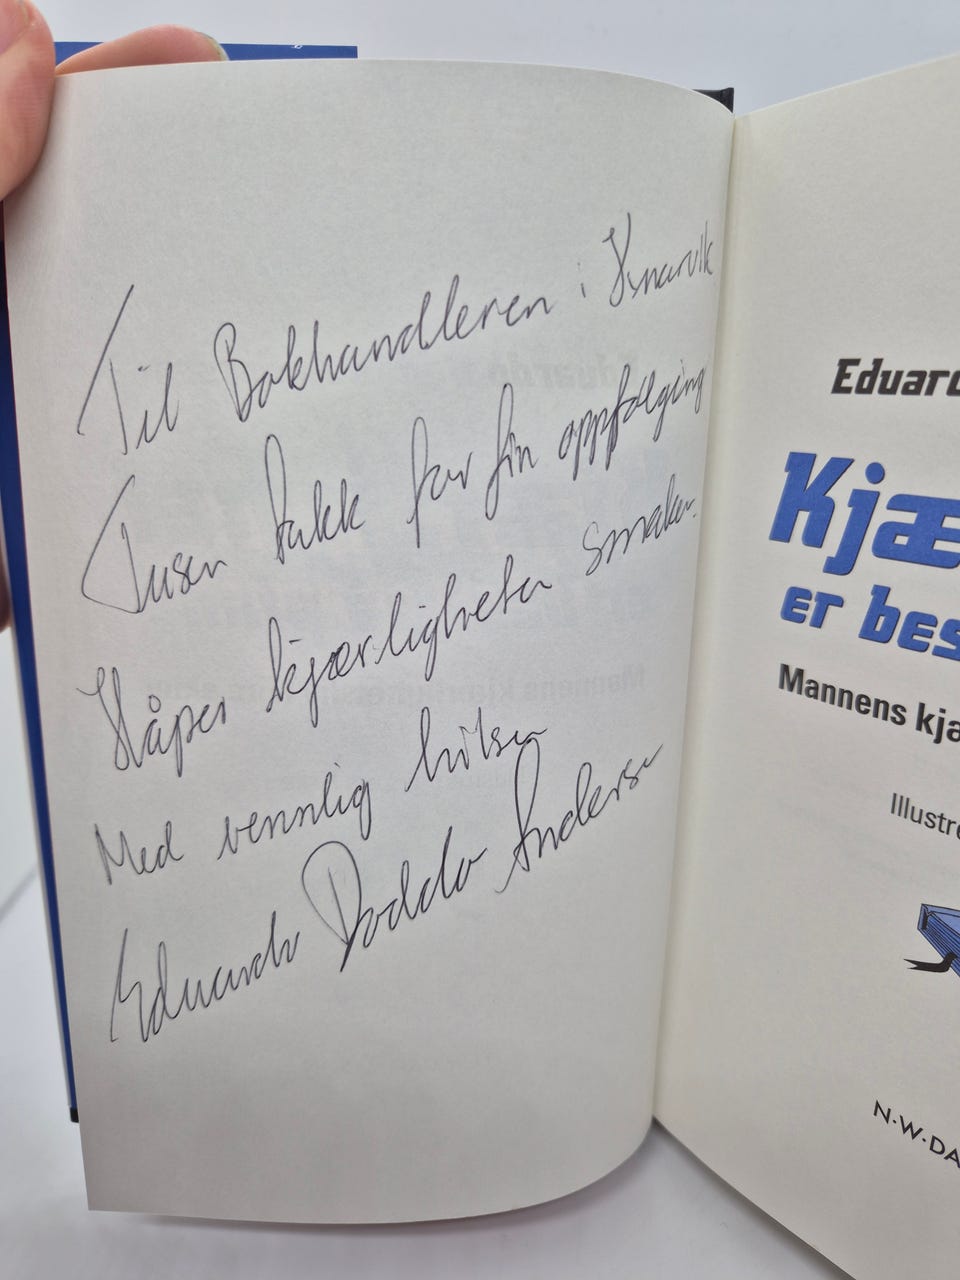 Til Bokhandleren i
Tusen takk for fin oppfølging
Håper kjærligheten smaker.
Med vennlig hilsen
Eduardo Doddo Andersen
Eduard
Kjæ
er bes
Mannens kjæ
Illustre
N·W·DA